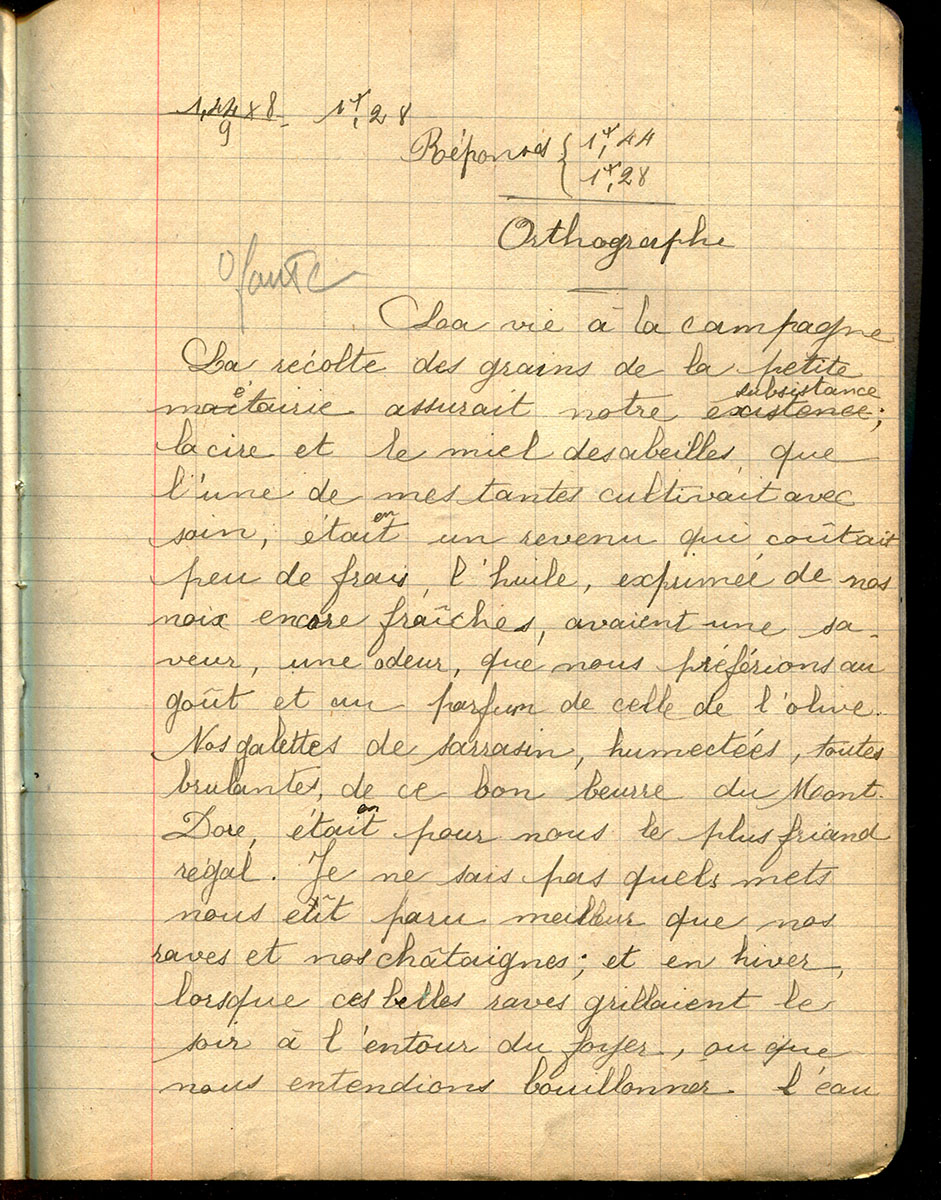 1,44 x 8 = 1f,28
9
Réponses { 1f,44
1f,28
Orthographe
0 faute
La vie à la campagne
La récolte des grains de la petite
métairie assurait notre existence subsistance;
la cire et le miel des abeilles, que
l'une de mes tantes cultivait avec
soin, étaient un revenu qui coûtait
peu de frais, l'huile, exprimée de nos
noix encore fraîches, avaient une sa-
veur, une odeur, que nous préférions au
goût et au parfum de celle de l'olive.
Nos galettes de sarrasin, humectées, toutes
brulantes, de ce bon beurre du Mont-
Dore, étaient pour nous le plus friand
régal. Je ne sais pas quels mets
nous eût paru meilleur que nos
raves et nos châtaignes; et en hiver,
lorsque ces belles raves grillaient le
soir à l'entour du foyer, ou que
nous entendions bouillonner l'eau